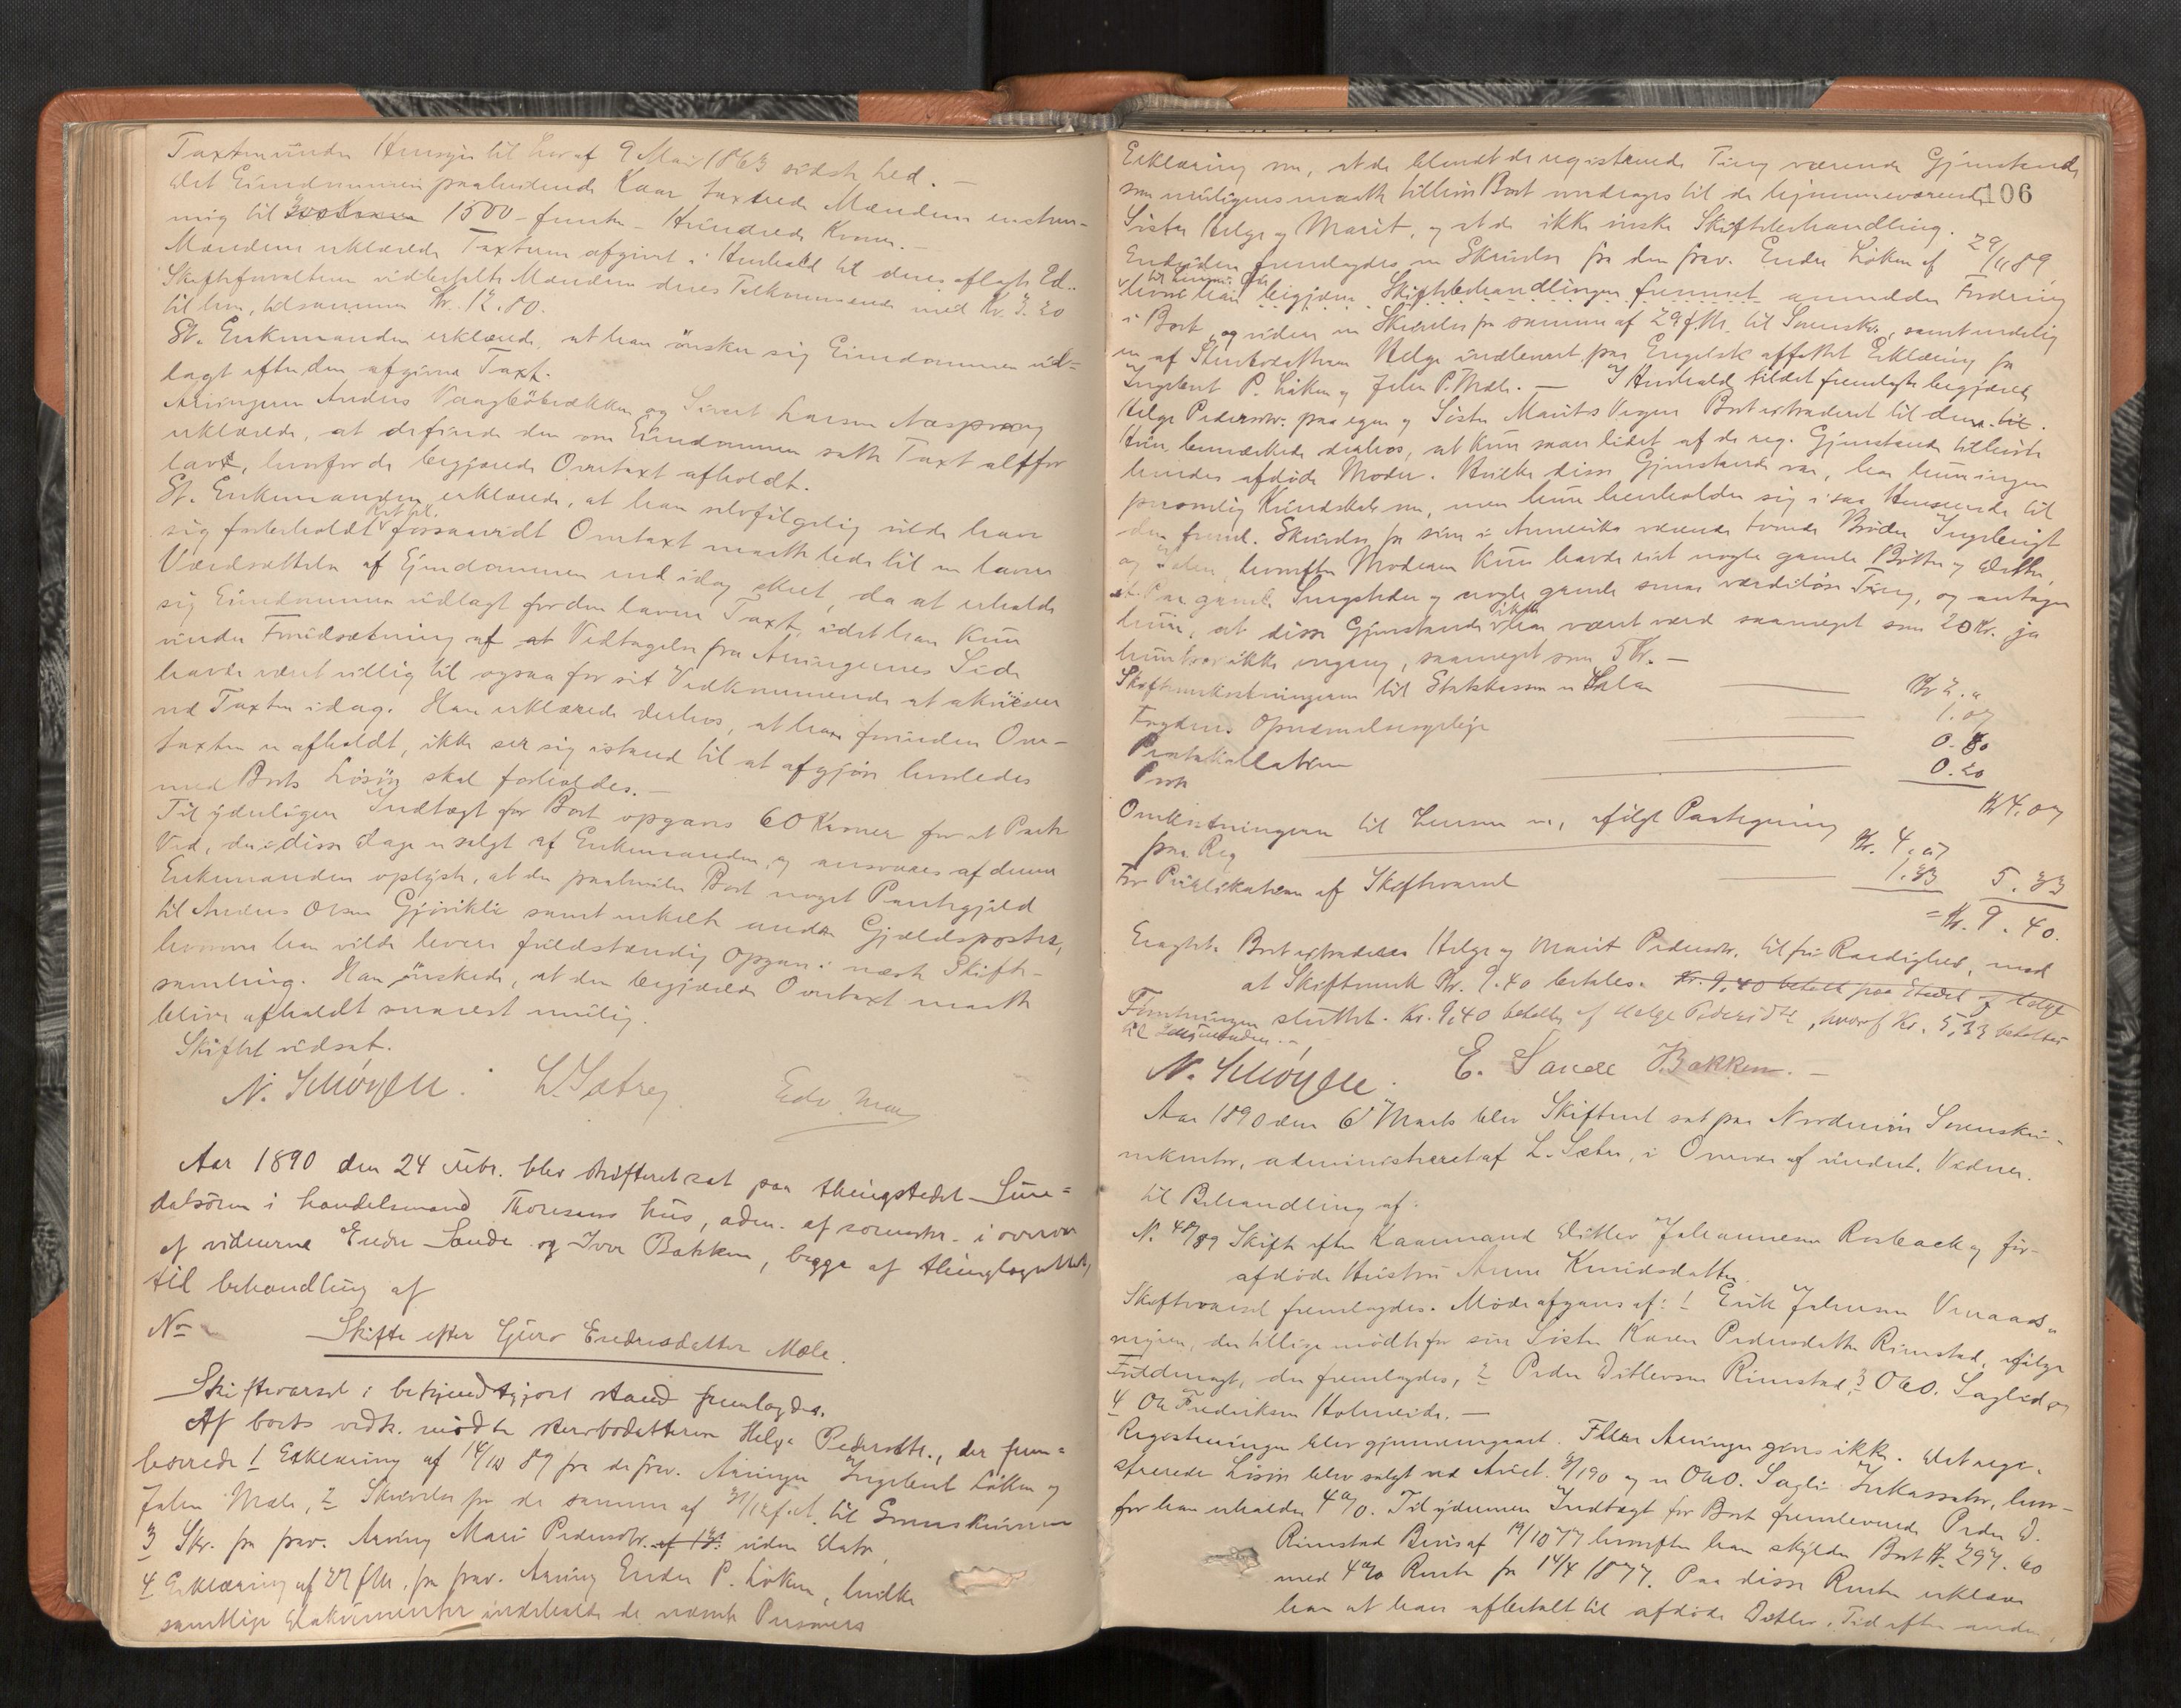 Taxtmænden Hensyn til Lov af 9 Mai 1863 sidste Led. —
Det Eiendommen paahvilende Kaar taxerede Mændene enstem-
mig til 1500 - femten - Hundrede Kroner. —
Mændene erklærede Taxterne afgivet i Henhold til deres aflagte Ed.
Skifteforvalteren udbetalte Mændene deres Tilkommende med Kr. 3.20
til hver, tilsammen Kr. 12.80.
St. Enkemanden erklærede, at han ønsker sig Eiendommen ud-
lagt efter den afgivne Taxt.
Arvingerne Anders Vaagbøbrækken og Sivert Larsen Aasprang
erklærede, at de finde den over Eiendommen satte Taxt altfor
lavt, hvorfor de begjærede Overtaxt afholdt.
St. Enkemanden erklærede, at han selvfølgelig vilde have
sig forbeholdt Ret til, forsaavidt Overtaxt maatte lede til en lavere
Værdsættelse af Ejendommen end idag skeet, da at erholde
sig Eiendommen udlagt for den lavere Taxt, idet han kun
under Forudsætning af at Vedtagelse fra Arvingernes Side
havde været villig til ogsaa for sit Vedkommende at akviescere
ved Taxten idag. Han erklærede derhos, at han forinden Over-
taxten er afholdt, ikke ser sig istand til at afgjøre hvorledes
med Boets Løsøre skal forholdes. —
Til yderligere Indtægt for Boet opgaves 60 Kroner for et Parti
Ved, der i disse Dage er solgt af Enkemanden, og ansvares af denne
Enkemanden oplyste, at der paahviler Boet noget Pantegjæld
til Anders Olsen Gjøvikli samt enkelte andre Gjældsposter,
hvorom han vilde levere fuldstændig Opgave i næste Skifte-
samling. Han ønskede, at den begjærede Overtaxt maatte
blive afholdt snarest mulig.
Skiftet udsat.
N. Schøyen. L. Sætrej Edv. Moe
Aar 1890 den 24 Febr. blev skifteret sat paa thingstedet Sure=
dalsøren i handelsmand Thoresens hus, adm. af sorenskr. i overvær
af vidnerne Endre Sande og Iver Bakken, begge af thinglaget,
til behandling af
No Skifte efter Guro Endresdatter Mæle.
Skiftevarsel i bekjendtgjort stand fremlagdes.
Af boets vedk. mødte sterbodatteren Helge Pedersdtr., der frem=
leverede 1 Erklæring af 14/10 89 fra de frav. Arvinger Ingebrigt Løken og
John Mæle, 2 Skrivelse fra de samme af 31/12 f. A. til Sorenskriveren
3 Skr. fra frav. Arving Mari Pedersdtr. uden Dato,
4 Erklæring af 27 f. M. fra frav. Arving Endre P. Løken, hvilke
samtlige Dokumenter indeholde de nævnte Personers
106
Erklæring om, at de blandt de registrerede Ting værende Gjenstande
som muligens maatte tilhøre Boet overdrages til de hjemmeværende
Søstre Helge og Marit, og at de ikke ønske Skiftebehandling.
Endvidere fremlagdes en Skrivelse fra den frav. Endre Løken af 29/11 89,
hvori han begjærer Skiftebehandlingen fremmet anmelder Fordring
i Boet, og videre en Skrivelse fra samme af 29 f. M. til Sorenskr., samt endelig
en af Sterbodatteren Helge indleveret paa Engelsk affattet Erklæring fra
Ingebrigt P. Løken og John P. Mæle. — I Henhold til det fremlagte begjærede
Helge Pedersdtr. paa egen og Søster Marits Vegne Boet extraderet til dem.
Hun bemærkede derhos, at kun saare lidet af de reg. Gjenstande tilhørte
hendes afdøde Moder. Hvilke disse Gjenstande var, har hun ingen
personlig Kundskab om, men hun henholder sig i saa Henseende til
den freml. Skrivelse fra sine i Amerika værende tvende Brødre Ingebrigt
og John, hvorefter Moderen kun havde eiet nogle gamle Bøtter og Ditto,
et Par gamle Sengklæder og nogle gamle smaa værdiløse Ting, og antager
hun, at disse Gjenstande ikke har været værd saameget som 20 Kr. ja
hun tror ikke engang, saameget som 5 Kr. —
Skifteomkostningerne til Statskassen er Salær Kr 2. "
Fogdens Opnævnelsesgebyr 1.07
Protokollation 0.80
Porto 0.20
Kr 4.07
Omkostningerne til Lensm. er, ifølge Paategning
paa Reg Kr. 4.07
For Publikation af Skiftevarsel 1.33 5.33
= Kr. 9.40.
Eragtet: Boet extraderes Helge og Marit Pedersdtr. til fri Raadighed, mod
at Skifteomk Kr. 9.40 betales. Kr. 9.40 betalt paa Stedet af Helge
Forretningen sluttet. Kr. 9,40 betaltes af Helge Pedersdtr, hvoraf Kr. 5,33 betaltes
til Lensmanden. -
N. Schøyen. E. Sande I. Bakken. —
Aar 1890 den 6 Marts blev Skifteret sat paa Nordmøre Sorenskri-
verkontor, administreret af L. Sæter, i Overvær af undert. Vidner.
til Behandling af:
N. 48/89 Skifte efter Kaarmand Ditlev Johannesen Rosback og før-
afdøde Hustru Anne Knudsdatter.
Skiftevarsel fremlagdes. Møde afgaves af: 1 Erik Johnsen Veraas-
myren, der tillige mødte for sin Søster Karen Pedersdatter Rimstad, ifølge
Fuldmagt, der fremlagdes, 2 Peder Ditlevsen Rimstad, 3 O. O. Saglid og
4 Ole Fredriksen Holmeide. —
Registreringen blev gjennemgaaet. Flere Arvinger gives ikke. Det regi-
strerede Løsøre blev solgt ved Auct. 3/1 90 og er O. O. Sagli Inkassator, hvor-
for han erholder 4 %. Til ydermere Indtægt for Boet fremleverede Peder D.
Rimstad Bevis af 19/10 77 hvorefter han skylder Boet Kr. 297.60
med 4 % Rente fra 14/4 1877. Paa disse Renter erklærer
han at have afbetalt til afdøde Ditlev, Tid efter anden,